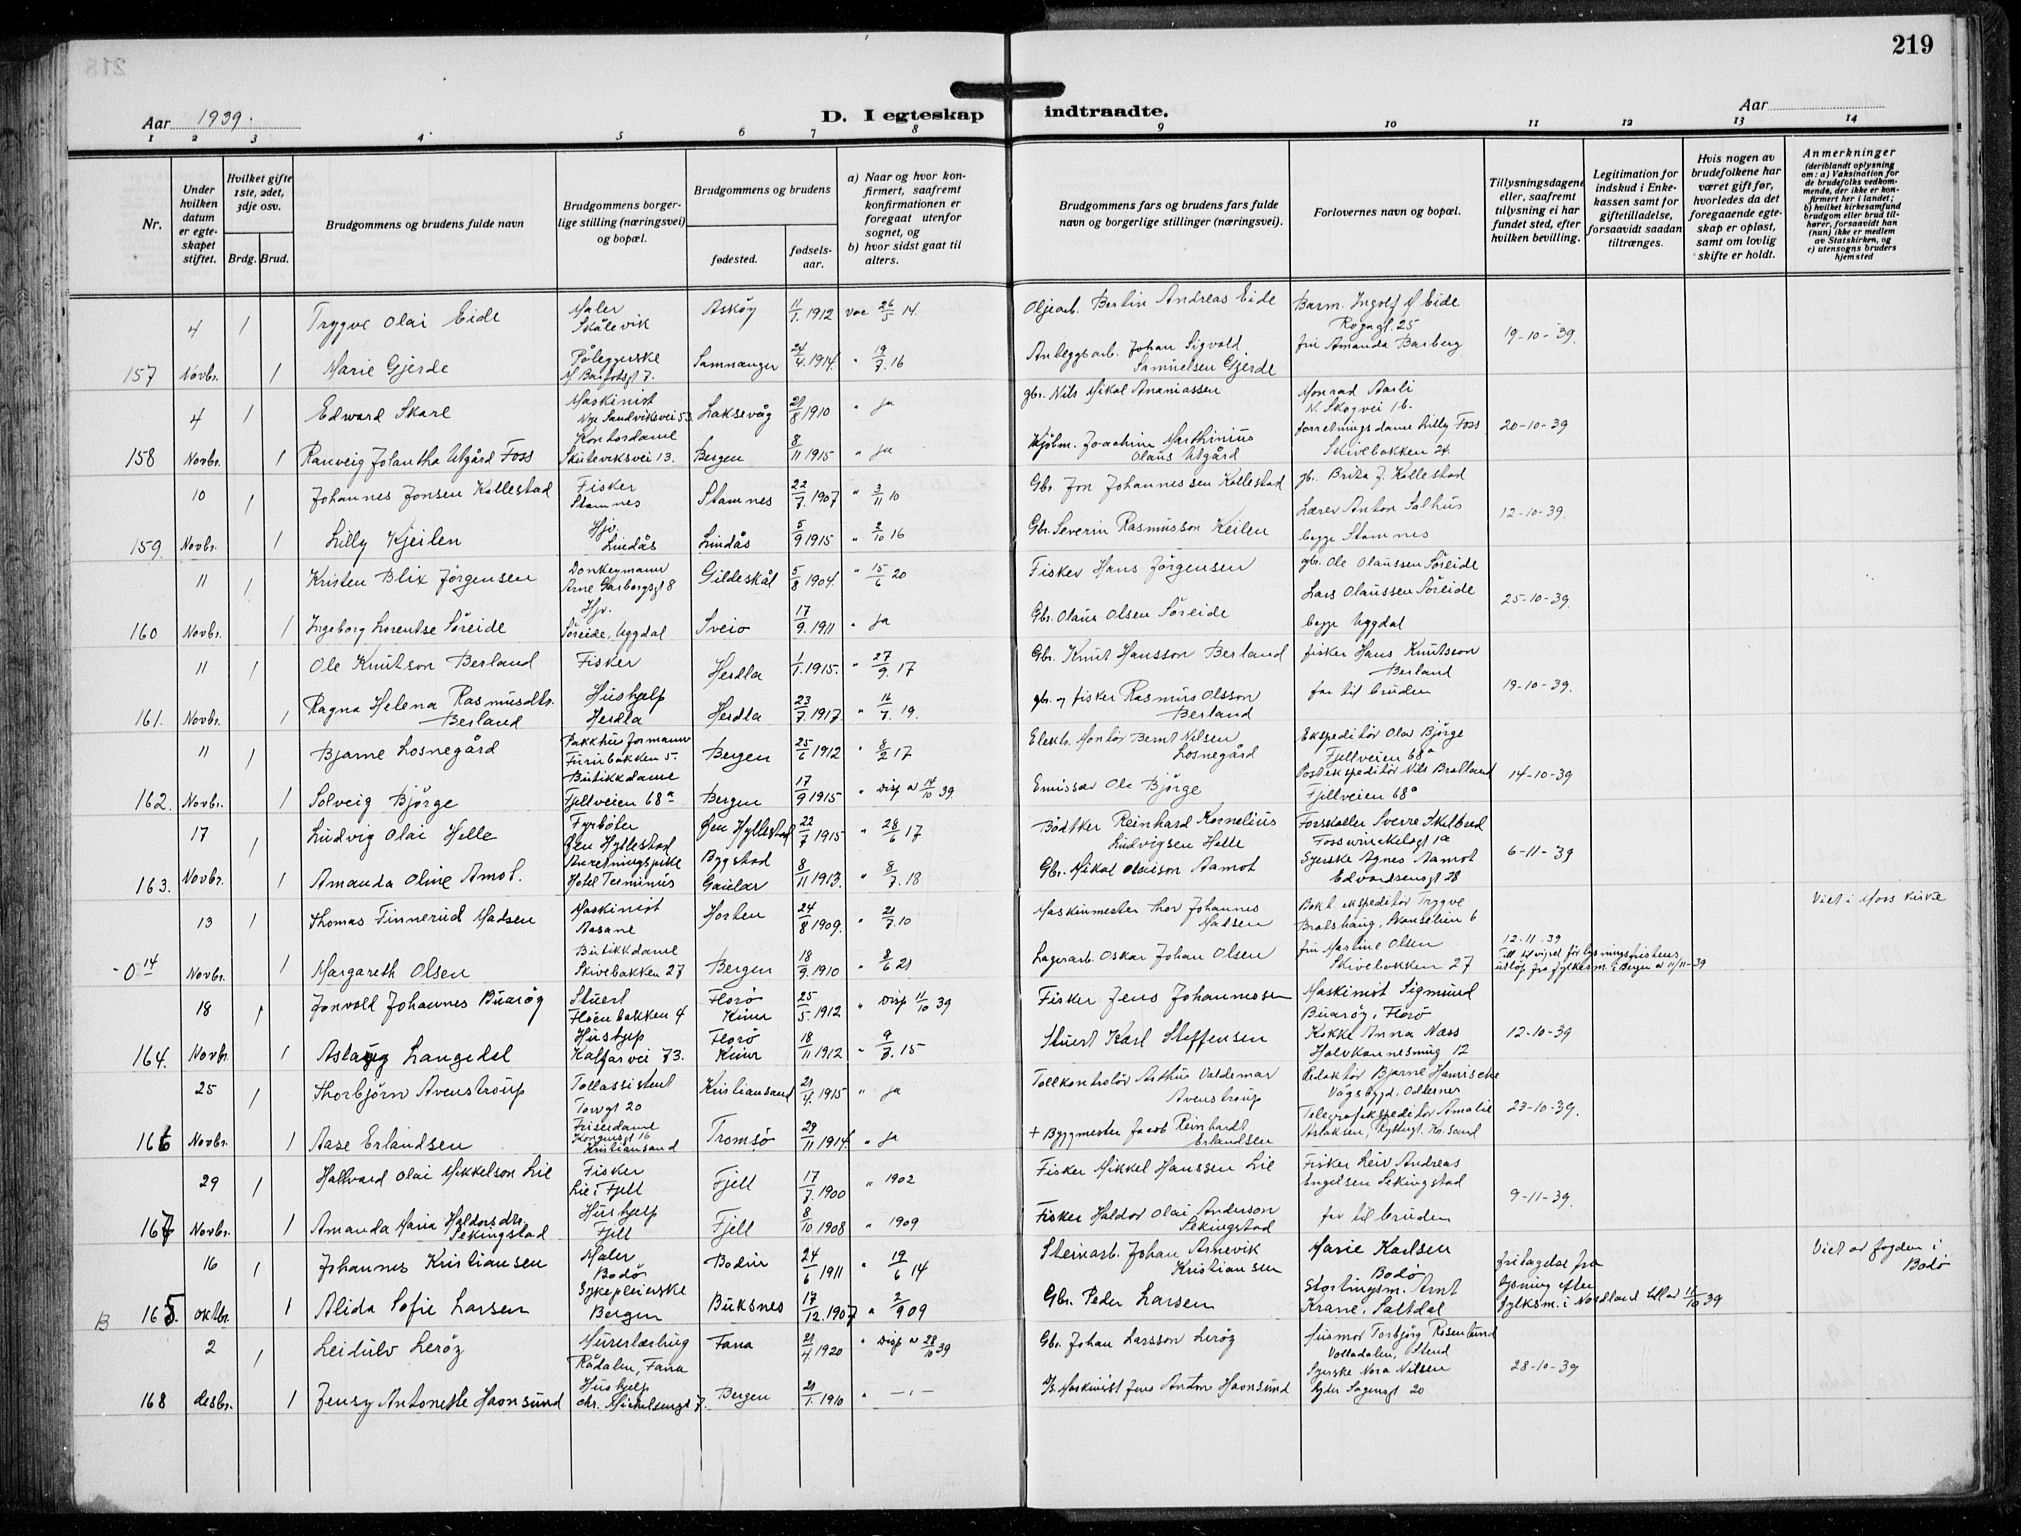 219
Aar 1939.
D. I egteskap indtraadte.
Aar
1 2 3 4 5 6 7 8 9 10 11 12 13 14
Nr.
Under hvilken datum er egteskapet stiftet.
Hvilket gifte 1ste, 2det, 3dje osv.
Brdg. Brud.
Brudgommens og brudens fulde navn
Brudgommens borgerlige stilling (næringsvei) og bopæl.
Brudgommens og brudens
fødested.
fødselsaar.
a) Naar og hvor konfirmert, saafremt konfirmationen er foregaat utenfor sognet, og
b) hvor sidst gaat til alters.
Brudgommens fars og brudens fars fulde navn og borgerlige stillinger (næringsvei).
Forlovernes navn og bopæl.
Tillysningsdagene eller, saafremt tillysning ei har fundet sted, efter hvilken bevilling.
Legitimation for indskud i Enkekassen samt for giftetilladelse, forsaavidt saadan tiltrænges.
Hvis nogen av brudefolkene har været gift før, hvorledes da det foregaaende egteskap er opløst, samt om lovlig skifte er holdt.
Anmerkninger
(deriblandt oplysning om: a) Vaksination for de brudefolks vedkommende, der ikke er konfirmert her i landet; b) hvilket kirkesamfund brudgom eller brud tilhører, forsaavidt han (hun) ikke er medlem av Statskirken, og c) utensogns bruders hjemsted
4 1 Trygve Olai Eide Maler Skålevik Askøy 11/1. 1912 vac 26/5 14. Oljearb. Bertin Andreas Eide Barm. Ingolf M Eide Rogagt. 25 19-10-39.
157 Novbr. 1 Marie Gjerde Påleggerske Samnanger 24/4. 1914 " 19/7. 16 Anleggsarb. Johan Sigvald Samuelsen Gjerde fru Amanda Barberg
4 1 Edward Skare Maskinist Nye Sandviksvei 53. Laksevåg 21/8 1910 " ja gbr. Nils Mikal Ananiassen Monrad Aarli N. Skogvei 1b. 20-10-39
158 Novbr. 1 Ranveig Jolantha Utgård Foss Kontordame Skuteviksvei 13. Bergen 8/11 1915 " ja Kjølm. Joachim Marthinius Olaus Utgård forretningsdame Lilly Foss Skivebakken 24.
10 1 Johannes Jonsen Kallestad Fisker Stamnes Stamnes 22/7. 1907 " 3/11 10 Gbr. Jon Johannessen Kallestad gb. Brita J. Kallestad 12-10-39.
159. Novbr. 1 Lilly Kjeilen Hjv. Lindås Lindås 5/9 1915 " 2/10 16 Gbr. Severin Rasmusson Keilen Lærer Anton Salhus begge Stamnes
11 1 Kristen Blix Jørgensen Donkeymann Arne Garborgsgt 8 Gildeskål 5/8 1904. " 15/6 20 Fisker Hans Jørgensen gbr. Ole Olaussen Søreide 25-10-39.
160 Novbr. 1 Ingeborg Lorentse Søreide Hjv. Søreide, Uggdal Sveio 17/9. 1911 " ja Gbr. Olaus Olsen Søreide Lars Olaussen Søreide begge Uggdal
11 1 Ole Knutson Berland Fisker Herdla 1/1. 1915. " 27/9. 17 Gbr. Knut Hansson Berland fisker Hans Knutsson Berland 19-10-39.
161. Novbr. 1 Ragna Helena Rasmusdtr. Berland Hushjelp Herdla Herdla 23/7. 1917. " 16/7. 19. gbr. og fisker Rasmus Olsson Berland far til bruden
11 1 Bjarne Losnegård Pakkhusformann Furubakken 5. Bergen 25/6 1912 " 8/2 17 Elektr. Montør Bernt Nilsen Losnegård Ekspeditør Olav Bjørge Fjellveien 68a 14-10-39
162. Novbr. 1 Solveig Bjørge Butikkdame Fjellveien 68a Bergen 17/9 1915 " Disp av 14/10 39 Emissær Ole Bjørge Postekspeditør Nils Bratland Fjellveien 68a
17 1 Ludvig Olai Helle Fyrbøter Øen Hyllestad Øen Hyllestad 22/7 1915 " 28/6 17 Bødtker Reinhard Kornelius Ludvigsen Helle Forskaller Sverre Skilbred Fosswinckelsgt 1a 6-11-39
163. Novbr. 1 Amanda Oline Amot. Anretningspike Hotel Terminus Bygstad Gaular 8/11 1913. " 8/7. 18 Gbr. Mikal Olaison Aamot Syerske Agnes Aamot Edvardsensgt 28
13 1 Thomas Finnerud Madsen Maskinist Aasane Horten 24/8 1909. " 21/7 10 Maskinmester Thor Johannes Madsen Bokt ekspeditør Trygve Bratshaug, Skanselien 6 12-11-39 Viet i Moss kirke
-0. 14 Novbr. 1 Margareth Olsen Butikkdame Skivebakken 27 Bergen 18/9. 1910 " 8/6 21 Lagerarb. Oskar Johan Olsen fru Martine Olsen Skivebakken 27 utløp fra fylkesm. i Bergen av 11/11-39
18 1 Jonvald Johannes Buarøy Stuert Fløenbakken 4 Florø Kinn 25/5. 1912 " Disp 11/10 39 Fisker Jens Johannessen Maskinist Sigmund Buarøy, Florø 12-10-39
164. Novbr. 1 Aslaug Langedal Hushjelp Kalfarvei 73. Florø Kinn 18/11 1912 " 9/7. 15 Stuert Karl Steffensen Kokke Anna Næss Halvkannesmug 12
25 1 Thorbjørn Avenstroup Tollassistent Torvgt 20 Kristiansand 21/4. 1915 " ja Tollkontrolør Arthur Valdemar Avenstroup Redaktør Bjarne Hanische Vågsbygd, Oddernes 23-10-39.
166 Novbr. 1 Aase Erlandsen Friserdame Kongensgt 16 Kristiansand Tromsø 29/11 1914. " ja + Byggmester Jacob Reinhardt Erlandsen Telegrafekspeditør Amalie Aslaksen, Ryttergt. Kr.sand
29 1 Hallvard Olai Mikkelson Lie Fisker Lie i Fjell Fjell 17/7. 1900 " 1902 Fisker Mikkel Hanssen Lie Fisker Leiv Andreas Engelsen Sekingstad 9-11-39.
167 Novbr. 1 Amanda Maria Haldorsdtr. Sekingstad Hushjelp Fjell Fjell 8/10 1908 " 1909 Fisker Haldor Olai Anderson Sekingstad far til bruden
16 1 Johannes Kristiansen Maler Bodø Bodin 24/6 1911 " 19/6 14 Steinarb. Johan Arnevik Kristiansen Marie Karlsen Bodø fritagelse fra lysning efter fylksm. i Nordland till av 11/10 39 Viet av fogden i Bodø
B 165. oktbr. 1 Alida Sofie Larsen Sykepleierske Bergen Buksnes 17/12. 1907 " 2/9 09 Gbr. Peder Larsen Stortingsm. Arnt Krane, Saltdal
2 1 Leidulv Lerøy Murerlærling Rådalen, Fana Fana 21/4. 1920 " Disp av 28/10 39 Gbr. Johan Larsson Lerøy husmor Torbjørg Rosenlund Volladalen, Stend 28-10-39
168 desbr. 1 Jensy Antonette Havnsund Hushjelp Chr. Michelsensgt 7. Bergen 21/1. 1910 " —"— Maskinist Jens Anton Havnsund Syerske Nora Nilsen Lyder Sagensgt 20